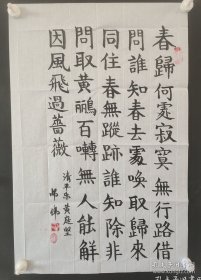 春歸何處寂寞無行路借
問誰知春去處喚取歸來
同住春無蹤跡誰知除非
問取黃鸝百囀無人能解
因風飛過薔薇
清平樂黃庭堅